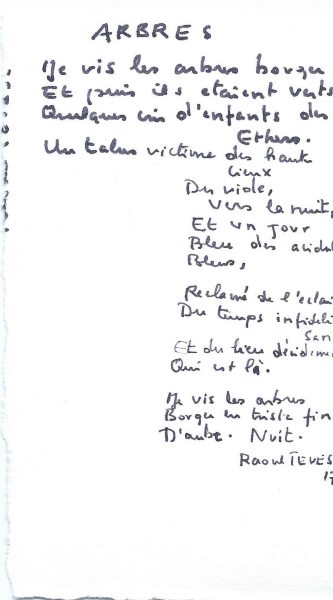 ARBRES
Je vis les arbres borgu
Et puis ils étaient verts
Quelques cris d'enfants des
Ethers.
Un talus victime des hauts
lieux
Du viole,
Vers la nuit,
Et un jour
Bleu des acidul
Bleus,
Reclamé de l'éclai
Du temps infideli
San
Et du lieu décideme
Qui est là.
Je vis les arbres
Borgu en triste fin
D'aube. Nuit.
Raoul TEVES
17